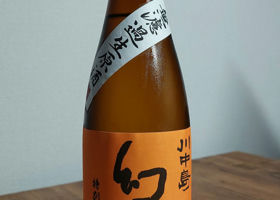 無濾過生原酒
川中島
幻
特別